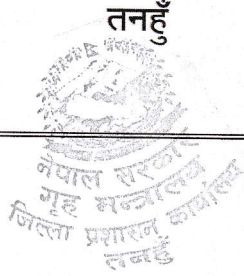 तनहुँ
नेपाल सरकार
गृह मन्त्रालय
जिल्ला प्रशासन कार्यालय
तनहुँ